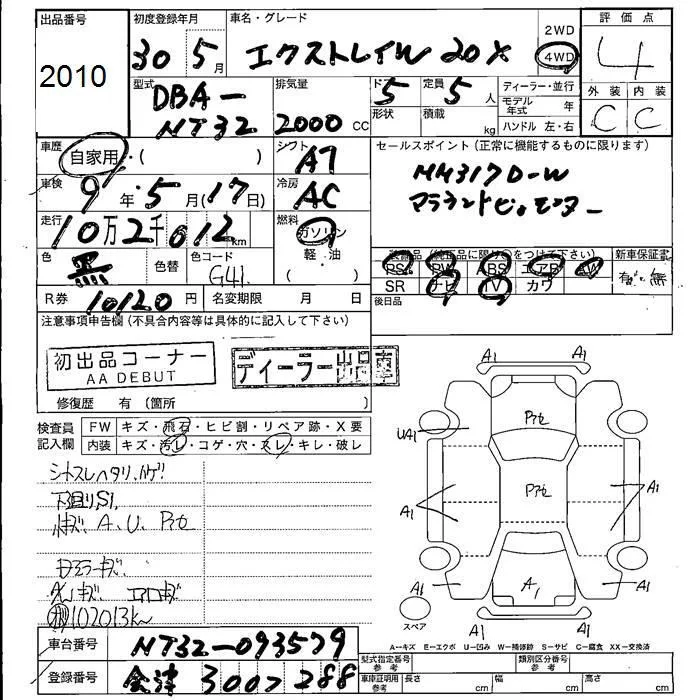 出品番号
2010
初度登録年月
30年 5月
車名・グレード
エクストレイル 20X
2WD
4WD
評価点
4
型式
DBA-
NT32
排気量
2000 CC
ドア
5
形状
定員
5 人
積載
kg
ディーラー・並行
モデル年式 年
ハンドル 左・右
外装 内装
C C
車歴
自家用・( )
シフト
AT
セールスポイント (正常に機能するものに限ります)
MM317D-W
車検
9年 5月(17日)
冷房
AC
走行
10万2千012km
燃料
ガソリン
軽・油
色
色替
色コード
G41
装備品 (純正品に限り○をつけて下さい)
PS PW ABS エアB AW
SR ナビ TV カワ
新車保証書
有・無
後日品
R券 10120円
名変期限 月 日
注意事項申告欄 (不具合内容等は具体的に記入して下さい)
初出品コーナー
AA DEBUT
ディーラー出品車
修復歴 有 (箇所
検査員記入欄
FW キズ・飛石・ヒビ割・リペア跡・X要
内装 キズ・汚レ・コゲ・穴・スレ・キレ・破レ
シートスレヘタリ,ハゲ
下廻りS1
小キズ A.U. Pアセ
ミラーキズ
エアロキズ
102013k
A1 A1
UA1
Pアセ
A1
Pアセ
A1
A1
A1
A1
スペア
A1 A1
A…キズ E…エクボ U…凹み W…補修跡 S…サビ C…腐食 XX…交換済
車台番号
NT32-093579
登録番号
会津 300 288
型式指定番号
参考
類別区分番号
参考
車庫証明用
参考
長さ cm
幅 cm
高さ cm